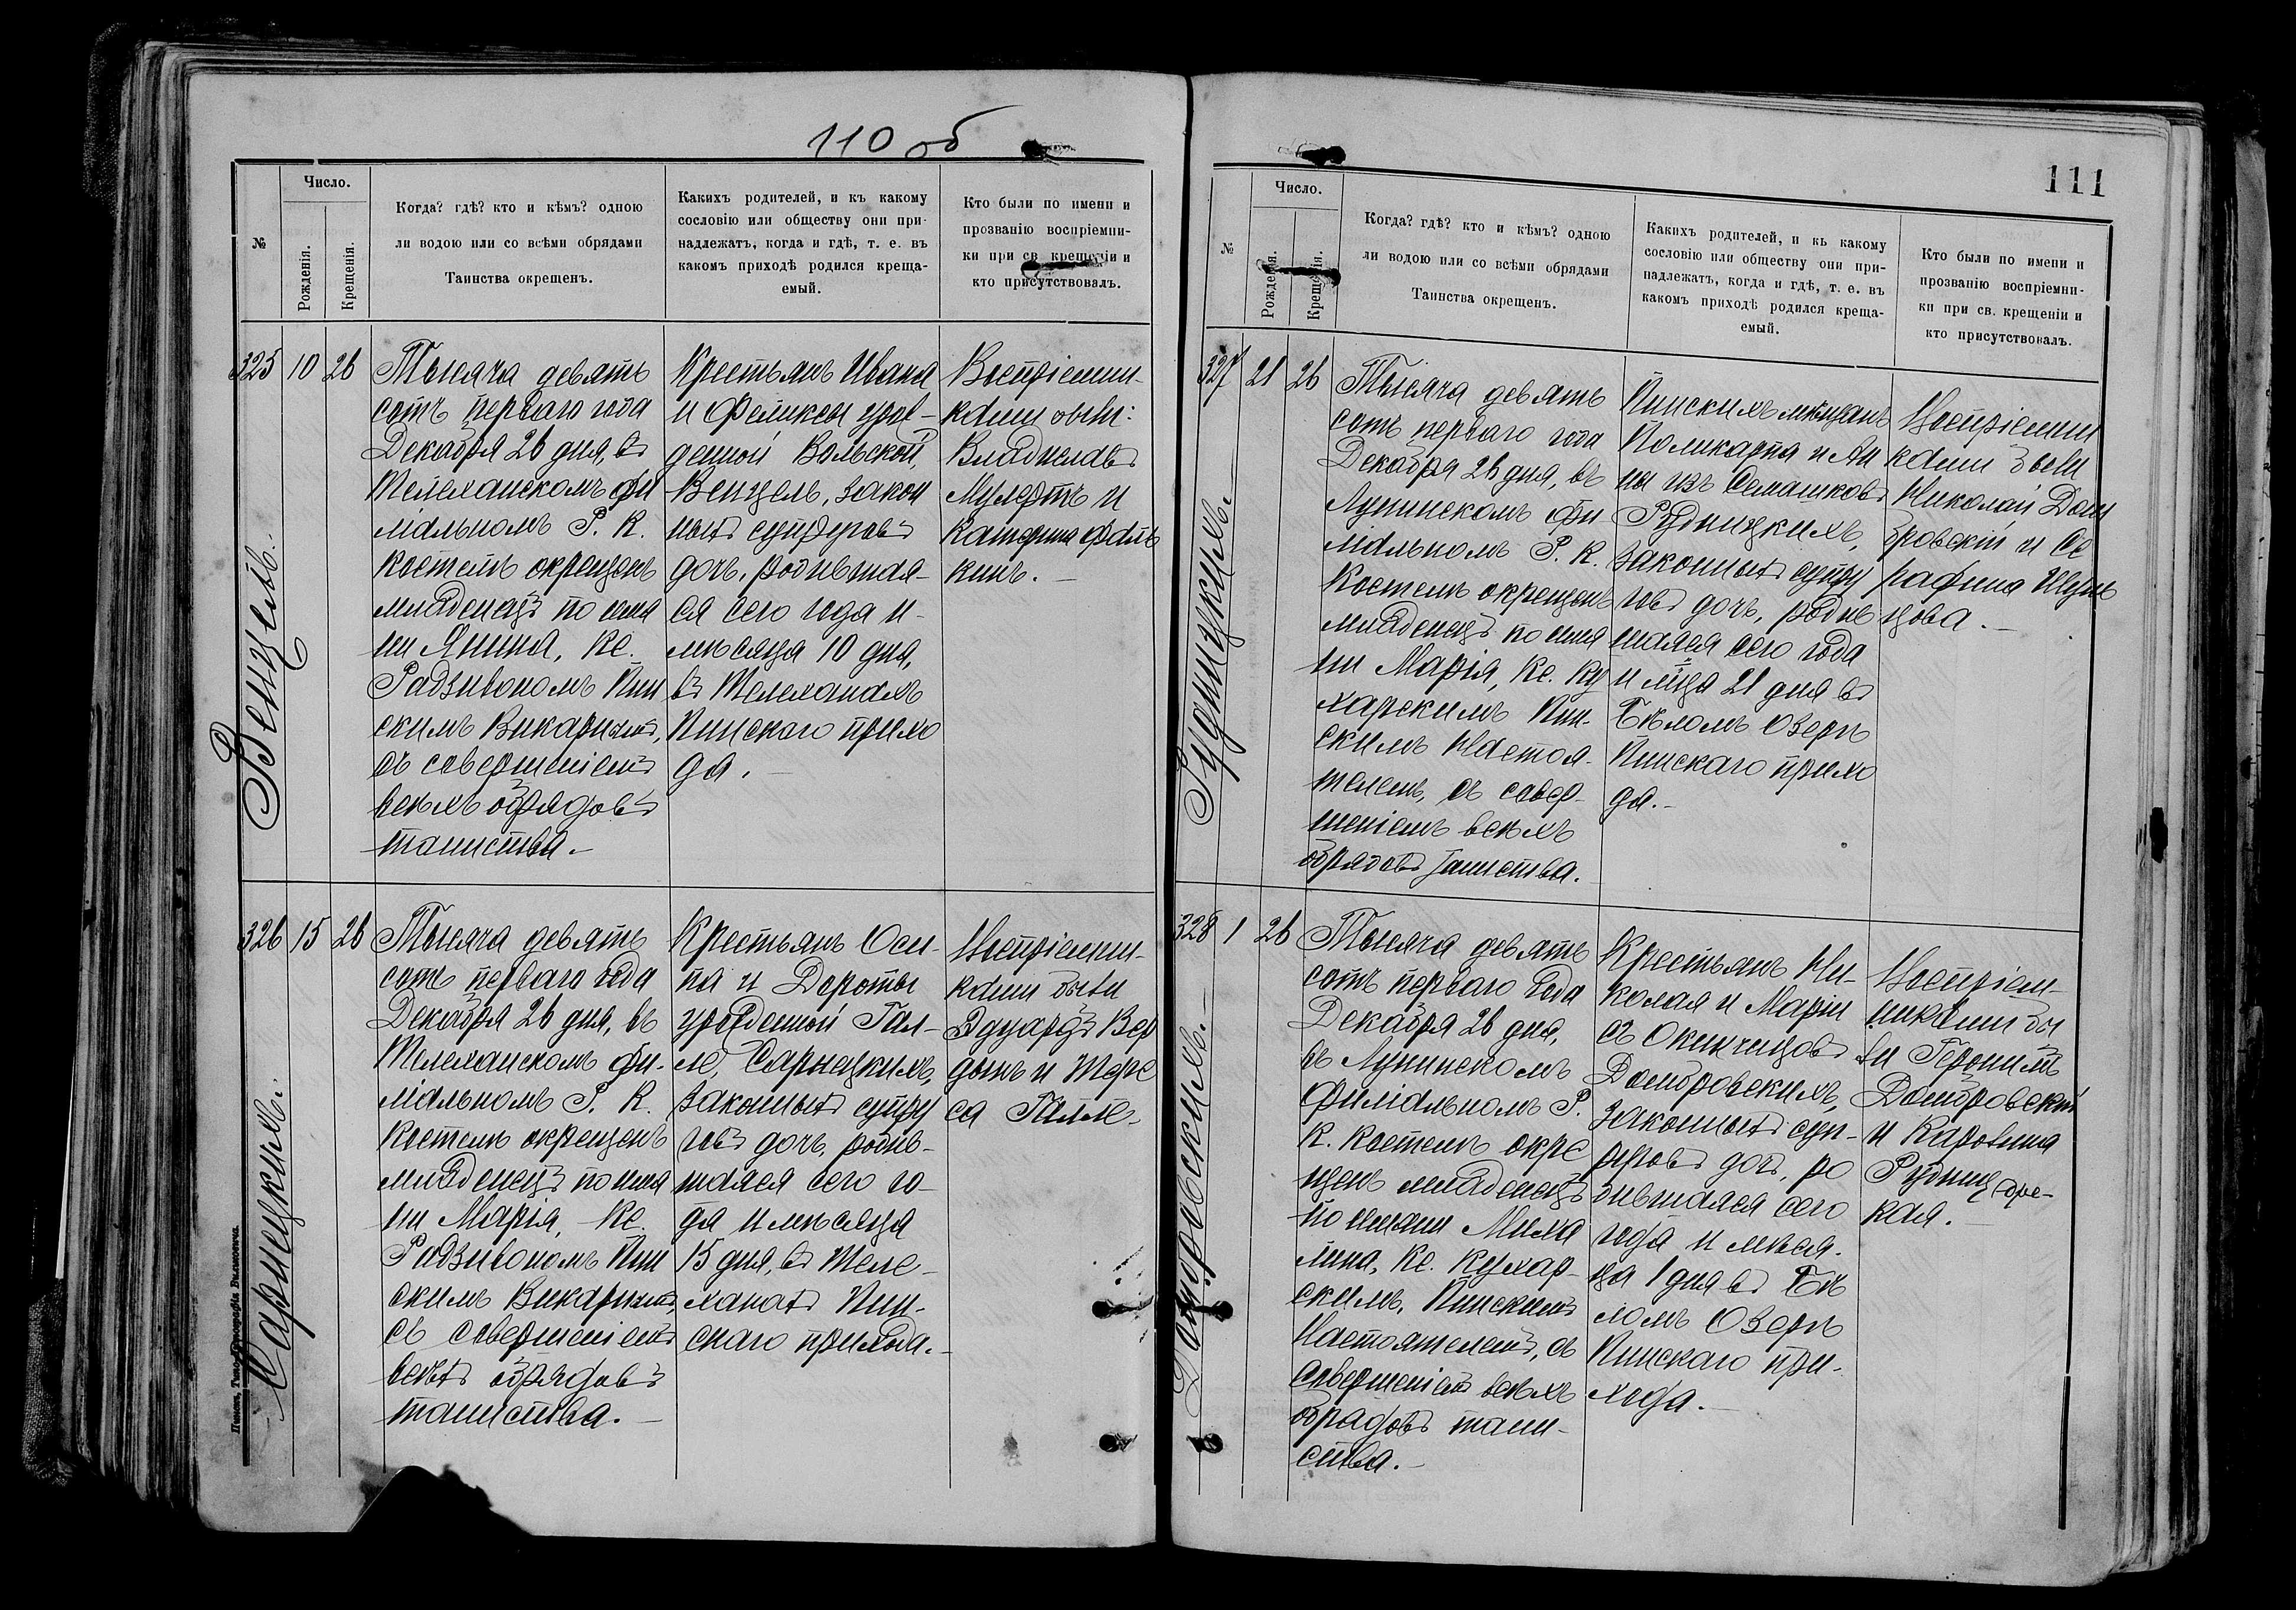 110 об
№
Число.
Рожденія.
Крещенія.
Когда? гдѣ? кто и кѣмъ? одною
ли водою или со всѣми обрядами
Таинства окрещенъ.
Каких​ъ родителей, и къ какому
сословію или обществу они при-
надлежатъ, когда и гдѣ, т. е. въ
какомъ приходѣ родился креща-
емый.
Кто были по имени и
прозванію воспріемни-
ки при св. крещеніи и
кто присутствовалъ.
Венцель.
325 10 26
Тысяча девять
сотъ перваго года
Декабря 26 дня, въ
Телеханскомъ фи
ліальномъ Р. К.
Костелѣ окрещенъ
младенецъ по име
ни Янина, Кс.
Радзивономъ Пин
скимъ Викаріемъ,
съ совершеніемъ
всѣхъ обрядовъ
таинства.
Крестьянъ Ивана
и Феликсы урож-
денной Вольской,
Венцель, закон
ныхъ супруговъ
дочь, родившая-
ся сего года и
мѣсяца 10 дня,
въ Телеханахъ
Пинскаго прихо
да.
Воспріемни-
ками были:
Владиславъ
Мулертъ и
Катерина Фаль
кинъ.
Сарнецкихъ.
326 15 26
Тысяча девять
сотъ перваго года
Декабря 26 дня, въ
Телеханскомъ фи-
ліальномъ Р. К.
Костелѣ окрещенъ
младенецъ по име
ни Марія, Кс.
Радзивономъ Пин
скимъ Викаріемъ,
съ совершеніемъ
всѣхъ обрядовъ
таинства.
Крестьянъ Оси-
па и Дороты
урожденной Гал-
ле, Сарнецкихъ,
законныхъ супру
говъ дочь, родив-
шаяся сего го-
да и мѣсяца
15 дня, въ Теле-
ханахъ Пин-
скаго прихода.
Воспріемни-
ками были
Эдуардъ Вер
дынъ и Тере
са Галле.
Пинскъ, Типо-Литографія Вилковича.
111
№
Число.
Рожденія.
Крещенія.
Когда? гдѣ? кто и кѣмъ? одною
ли водою или со всѣми обрядами
Таинства окрещенъ.
Какихъ родителей, и къ какому
сословію или обществу они при-
надлежатъ, когда и гдѣ, т. е. въ
какомъ приходѣ родился креща-
емый.
Кто были по имени и
прозванію воспріемни-
ки при св. крещеніи и
кто присутствовалъ.
Рудницкихъ.
327 21 26
Тысяча девять
сотъ перваго года
Декабря 26 дня, въ
Лунинскомъ фи
ліальномъ Р. К.
Костелѣ окрещенъ
младенецъ по име
ни Марія, Кс. Ку
харскимъ Пин-
скимъ Настоя-
телемъ, съ совер-
шеніемъ всѣхъ
обрядовъ таинства.
Пинскихъ мѣщанъ
Поликарпа и Ан
ны изъ Семашковъ
Рудницкихъ,
законныхъ супру
говъ дочь, родив
шаяся сего года
и м-ца 21 дня въ
Бѣломъ Озерѣ
Пинскаго прихо
да.
Воспріемни
ками были
Николай Дом
бровскій и Се
рафина Шум
цова.
Домбровскихъ.
328 1 26
Тысяча девять
сотъ перваго года
Декабря 26 дня,
въ Лунинскомъ
филіальномъ Р.
К. Костелѣ окре
щенъ младенецъ
по имени Миха
лина, Кс. Кухар-
скимъ, Пинскимъ
Настоятелемъ, съ
совершеніемъ всѣхъ
обрядовъ таин-
ства.
Крестьянъ Ни-
колая и Маріи
съ Окинчицовъ
Домбровскихъ,
законныхъ суп-
руговъ дочь, ро
дившаяся сего
года и мѣся-
ца 1 дня въ Бѣ
ломъ Озерѣ
Пинскаго при-
хода.
Воспріем-
никами бы
ли Геронимъ
Домбровскій
и Каролина
Рудниц
кая.